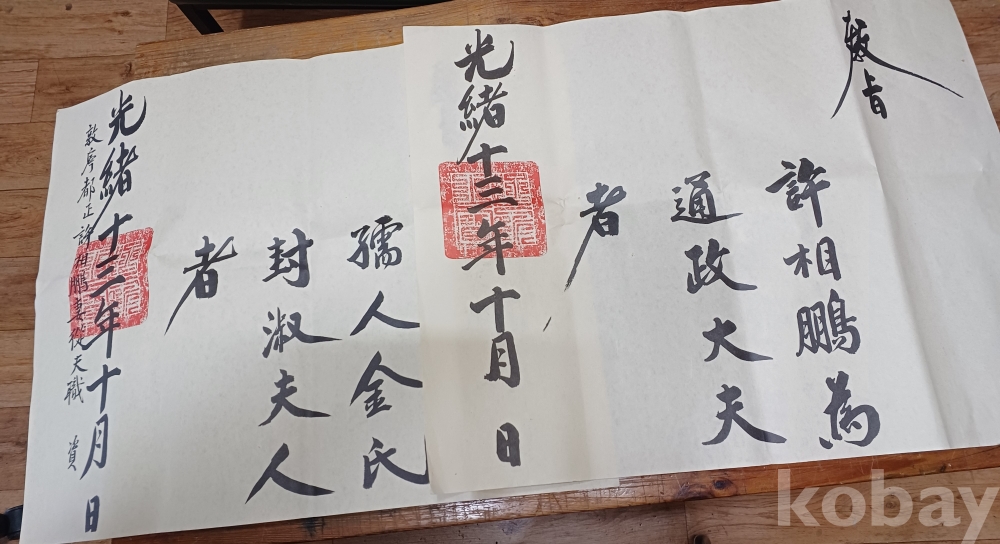 敎旨
許相鵬爲
通政大夫
者
光緒十三年十月 日
孺人金氏
封淑夫人
者
光緒十三年十月 日
都正許相鵬妻從夫職
kobay